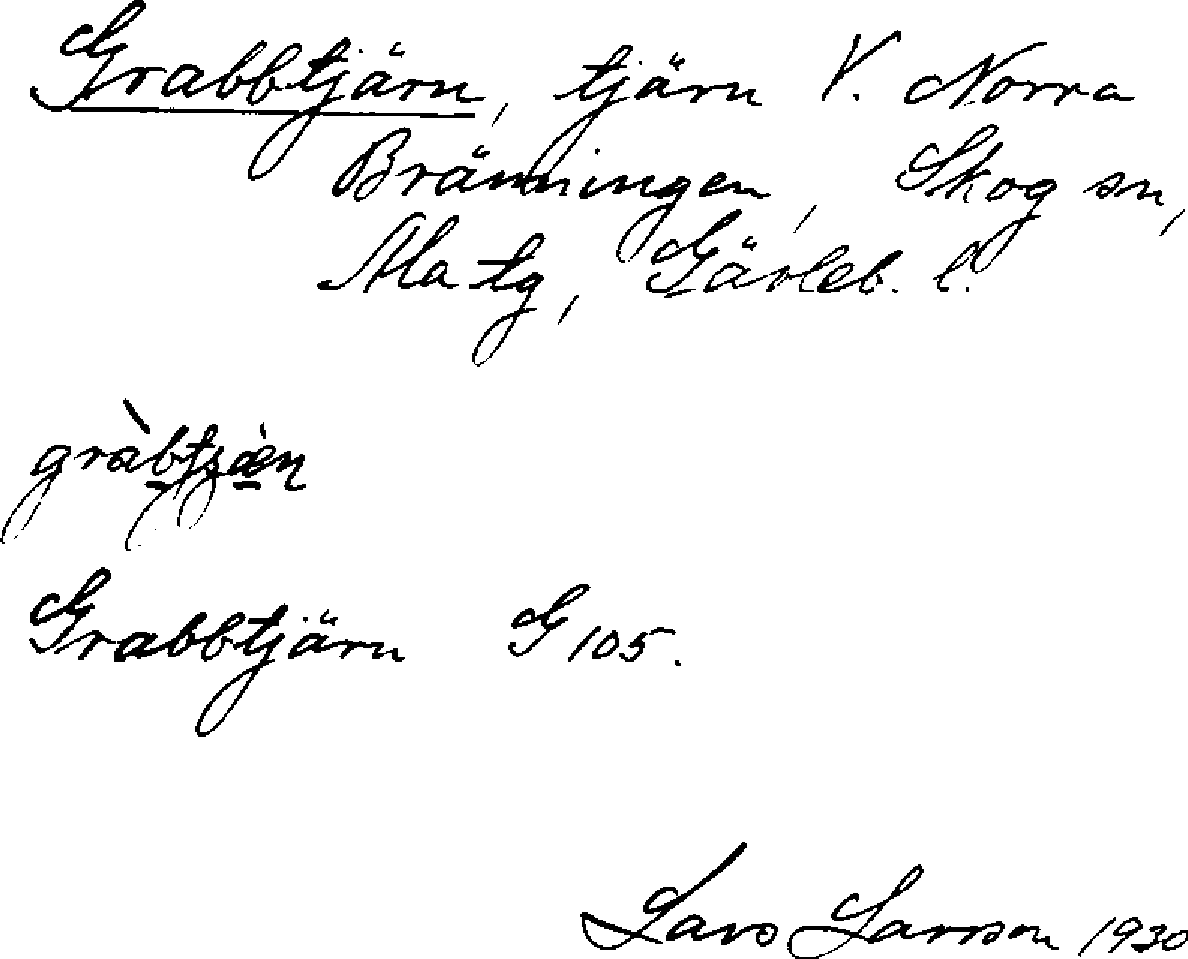 Grabbtjärn, tjärn V. Norra
Bränningen, Skog sn,
Ala tg, Gävleb. l.
Grabbtjärn G 105.
Lars Larsson 1930